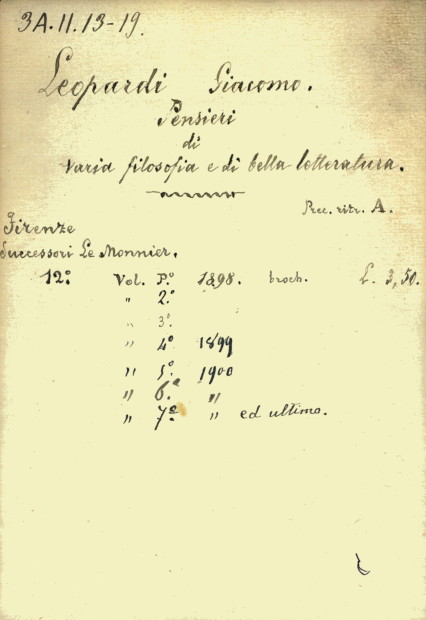 3A.11.13-19.
Leopardi Giacomo.
Pensieri
di
varia filosofia e di bella letteratura.
Prec. ritr. A.
Firenze
Successori Le Monnier.
12º. Vol. Pº. 1898. broch. L. 3,50.
" 2º.
" 3º.
" 4º 1899
" 5º. 1900
" 6.º "
" 7º. " ed ultimo.